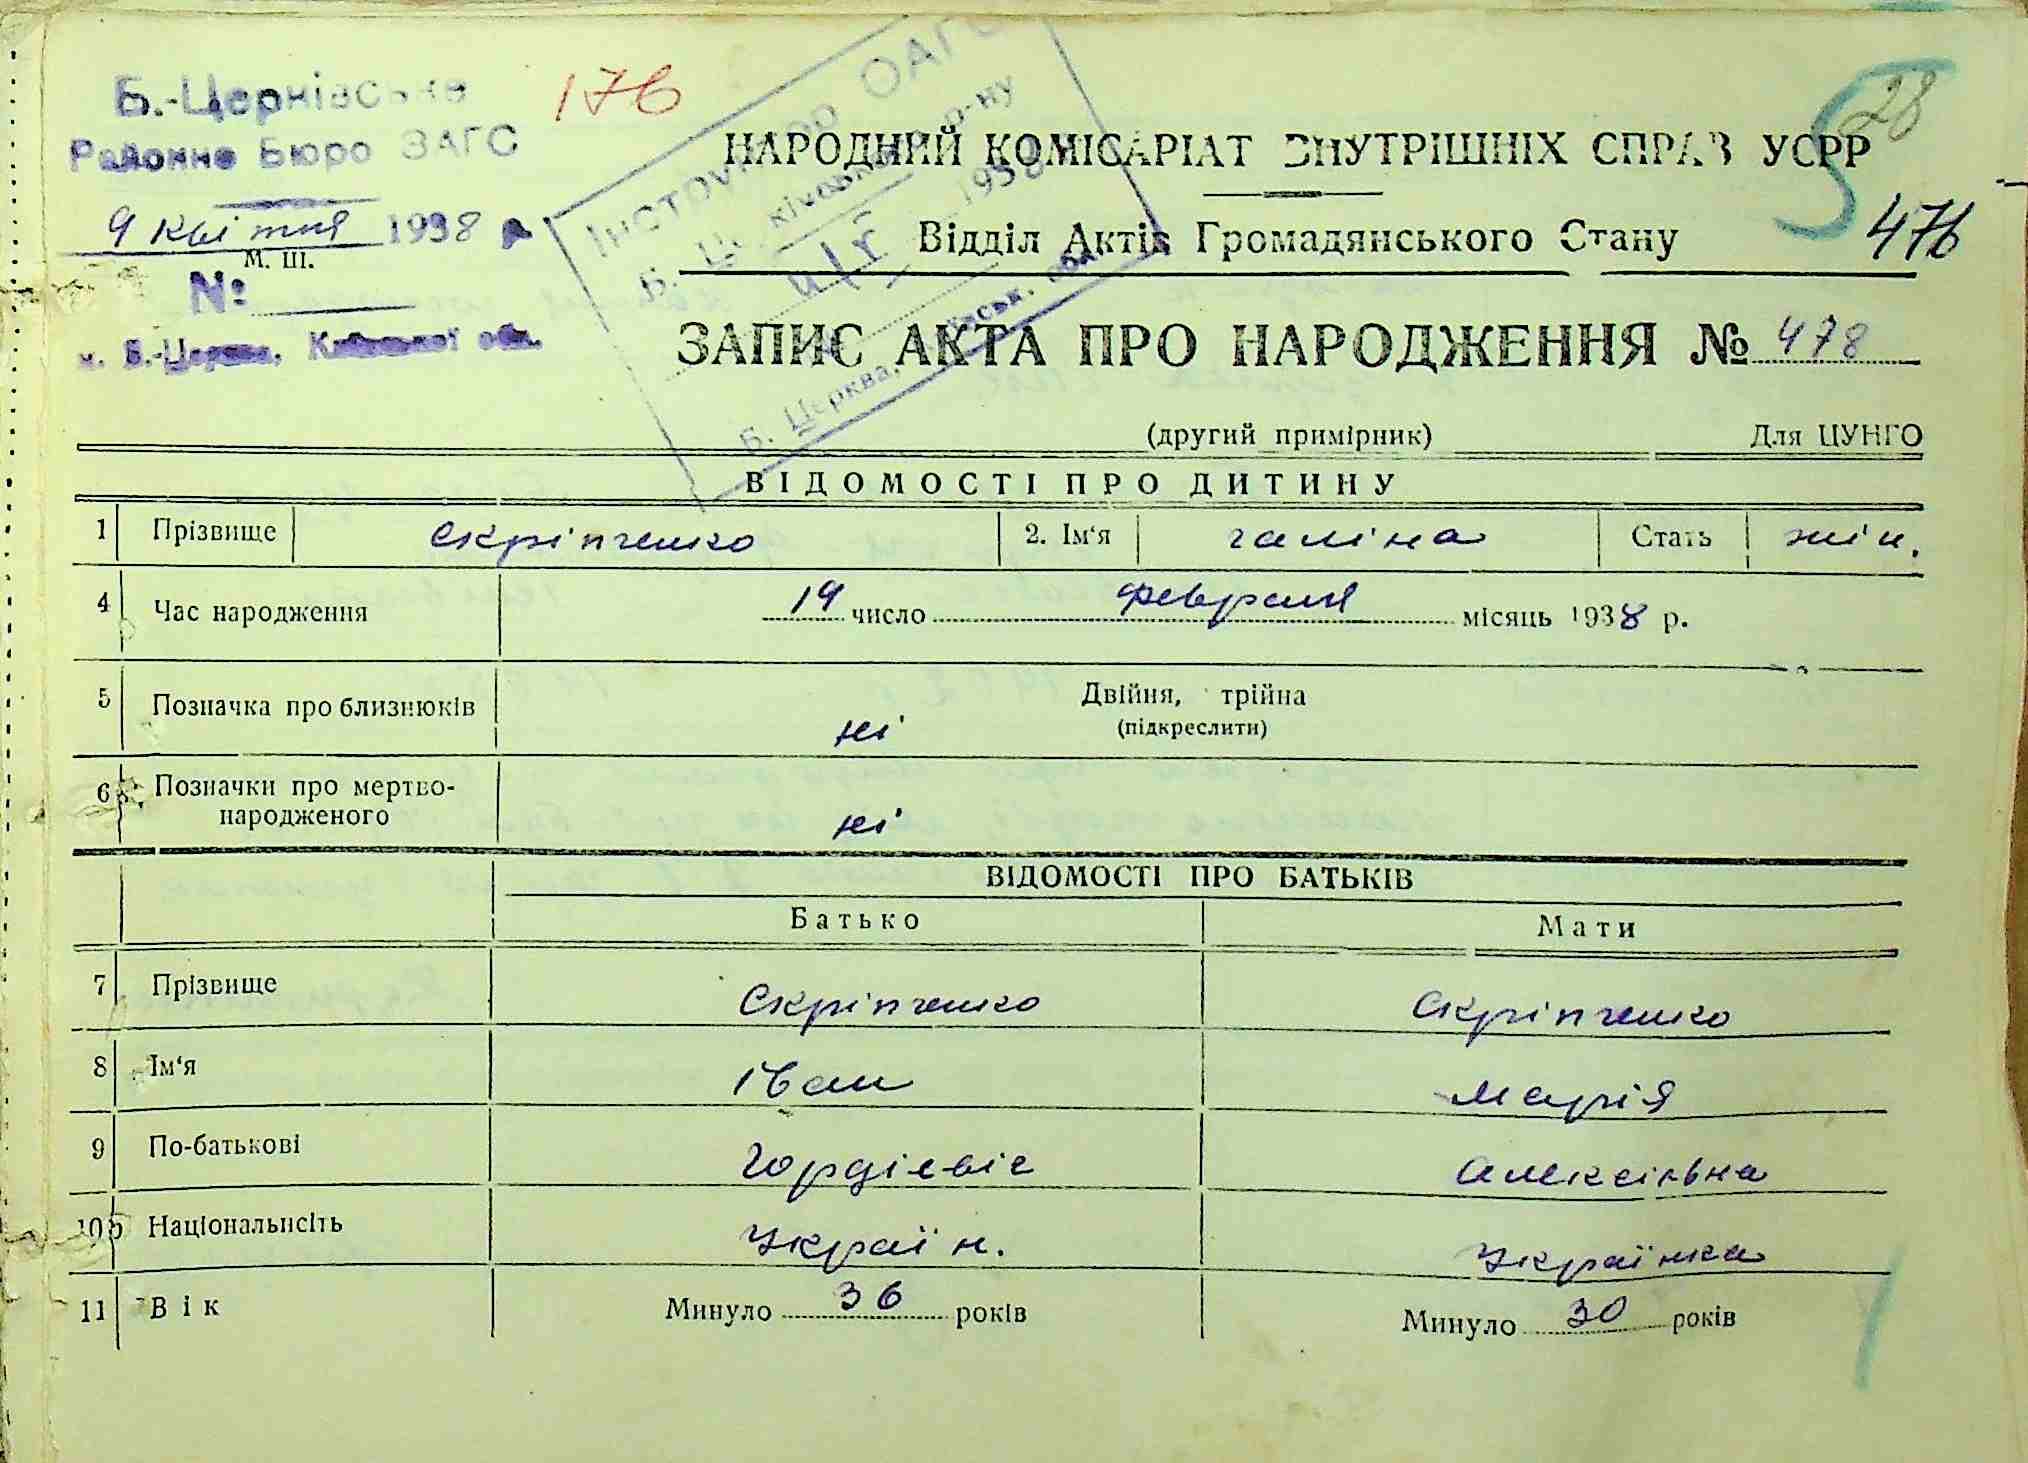 Б.-Церківське
Районне Бюро ЗАГС
176
28
НАРОДНИЙ КОМІСАРІАТ ВНУТРІШНІХ СПРАВ УСРР
9 квітня 1938 р
М. Ш.
Відділ Актів Громадянського Стану
476
№
м. Б.-Церква, Київської обл.
Інструктор ОАГС
Б. Церківського р-ну
1938
Б. Церква,
ЗАПИС АКТА ПРО НАРОДЖЕННЯ № 478
(другий примірник) Для ЦУНГО
ВІДОМОСТІ ПРО ДИТИНУ
1 Прізвище Скріпченко 2. Ім'я Галіна Стать жін.
4 Час народження 19 число февраля місяць 1938 р.
5 Позначка про близнюків ні Двійня, трійна
(підкреслити)
6 Позначки про мертво-
народженого ні
ВІДОМОСТІ ПРО БАТЬКІВ
Батько Мати
7 Прізвище Скріпченко Скріпченко
8 Ім'я Іван Марія
9 По-батькові Гордієвіч Алексієвна
10 Національнсіть Україн. Українка
11 Вік Минуло 36 років Минуло 30 років